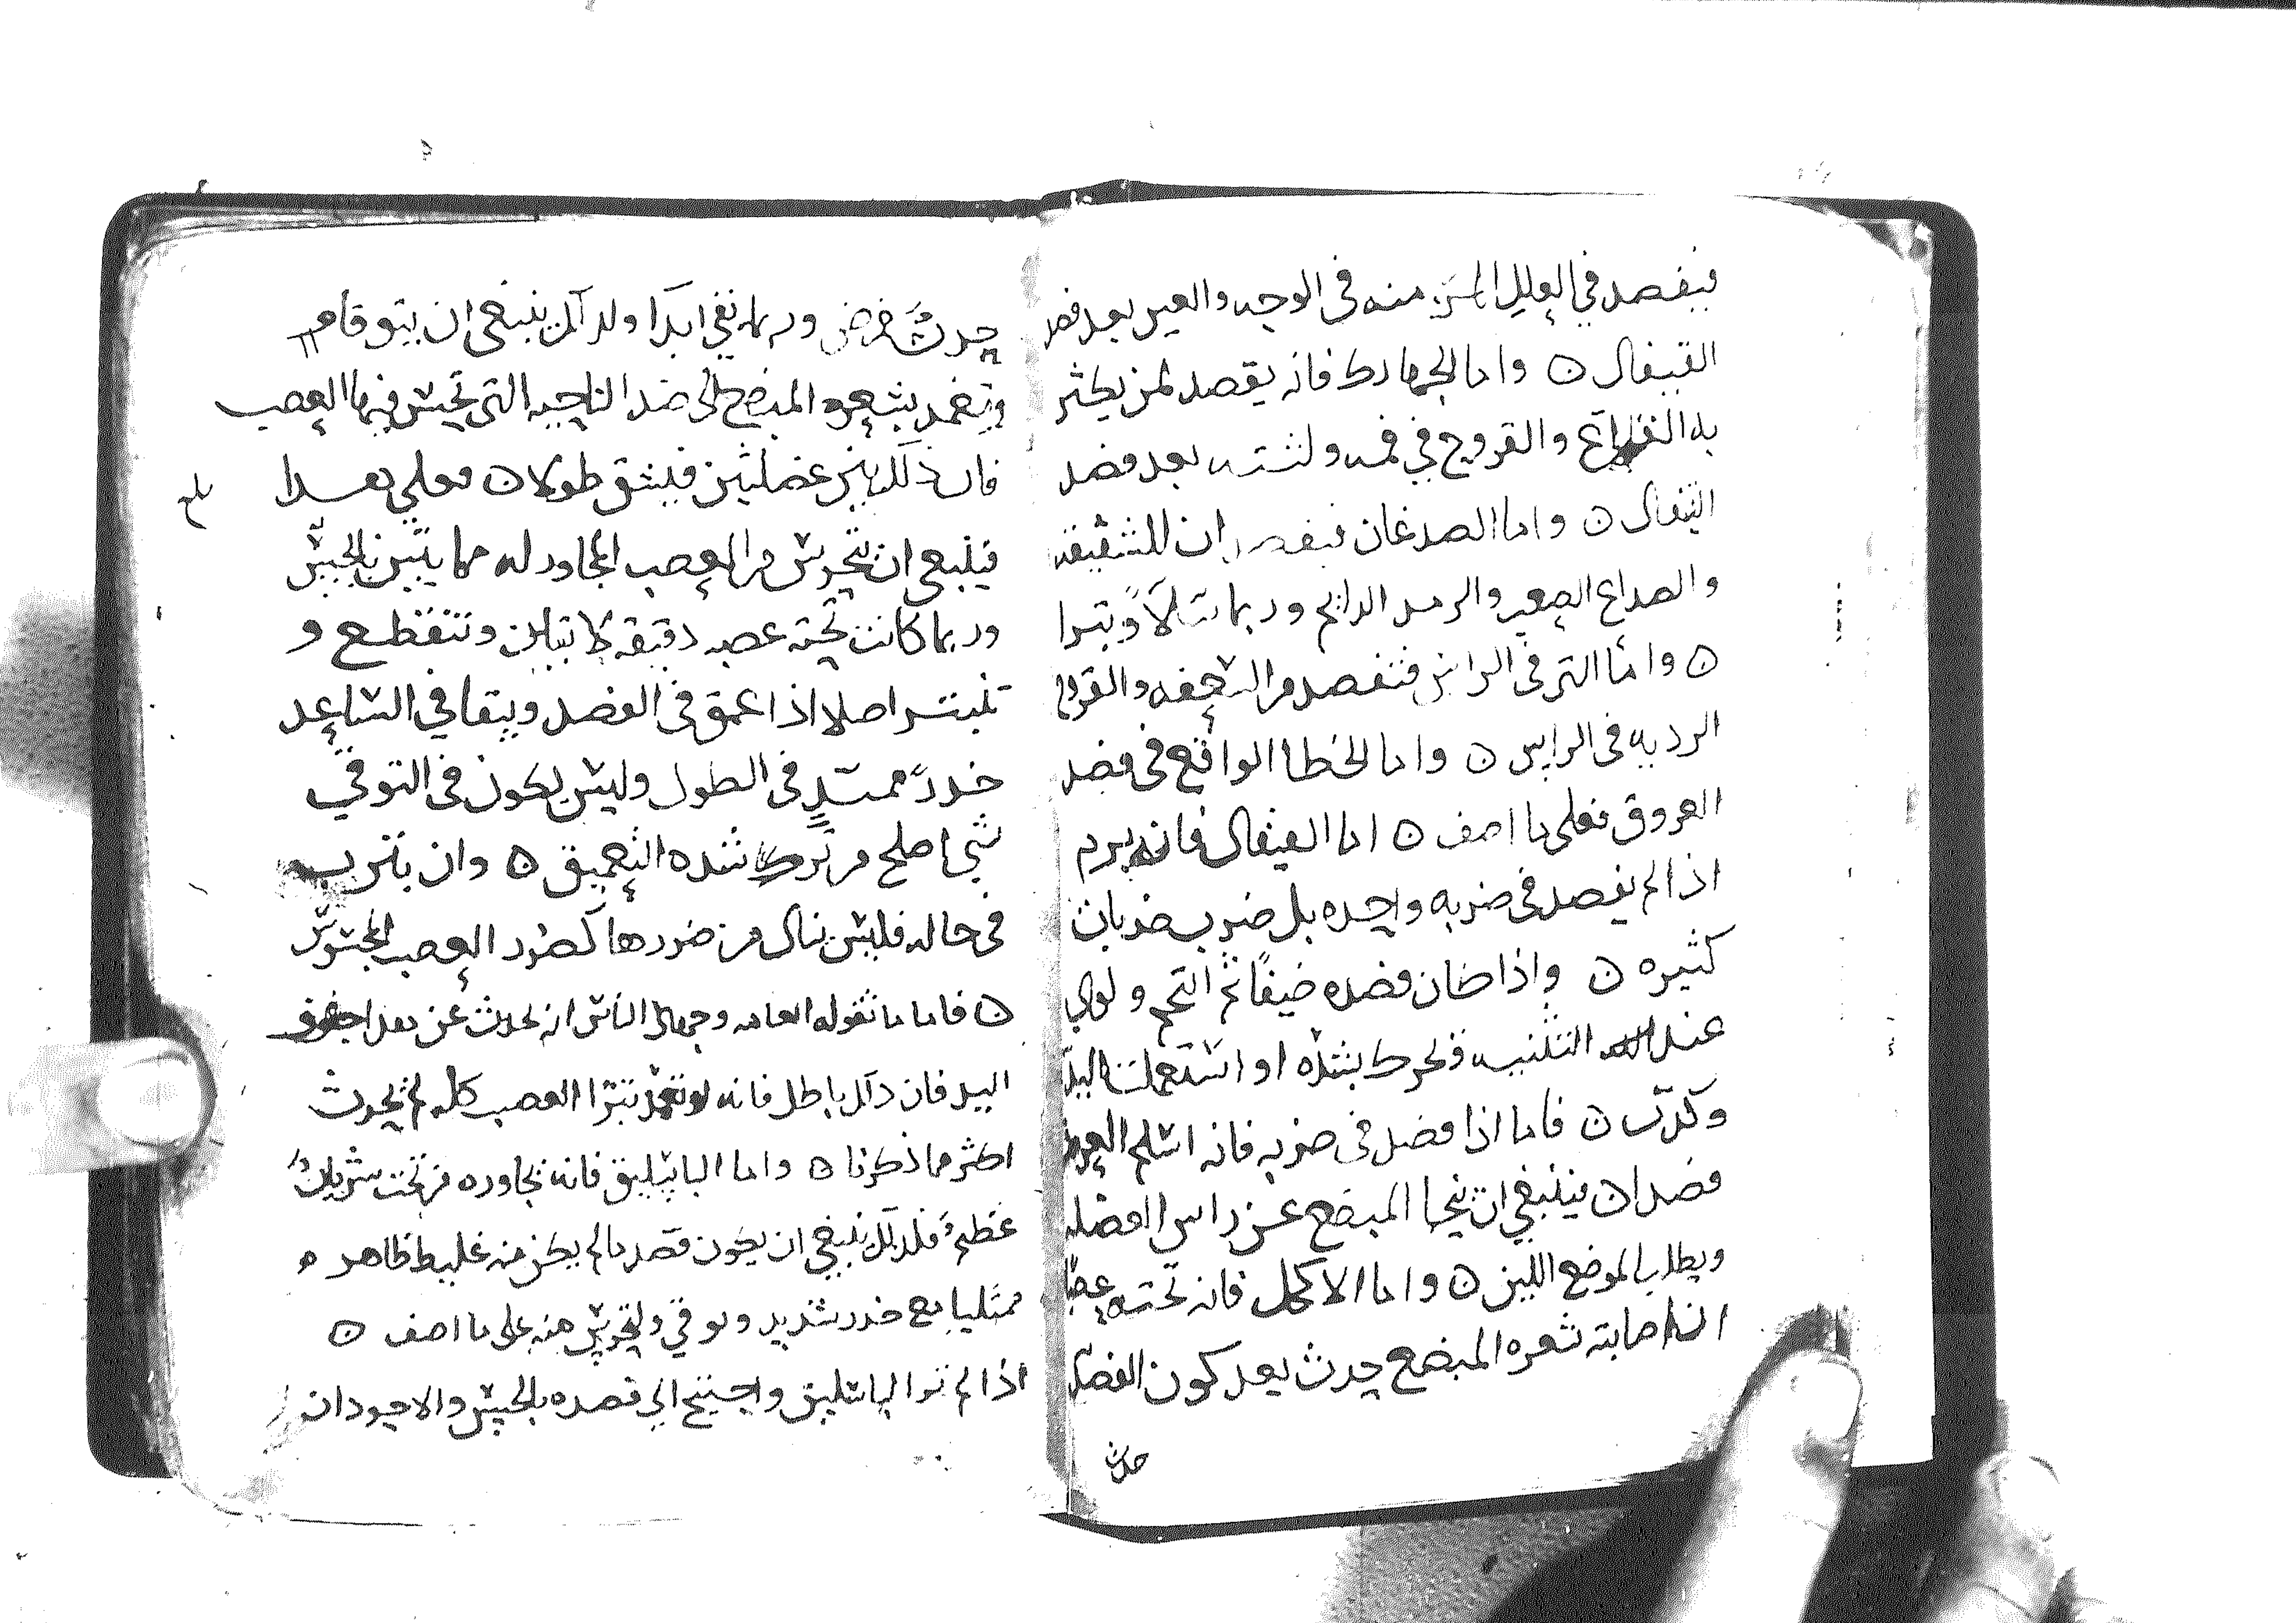 فيفصد في العلل المزمنه في الوجه والعين بعد فصد
القيفال ن واما الجهارك فانه يفصد لمن يكثر
به القلاع والقروح في فمه ولثته بعد فصد
القيفال ن واما الصدغان فيفصدان للشقيقه
والصداع الصعب والرمد الدايم وربما سلا وبترا
ن واما التي في الراس فتفصد من السعفه والقروح
الرديه في الراس ن واما الخطا الواقع في فصد
العروق فعلى ما اصف ن اما القيفال فانه يرم
اذا لم يفصد في ضربه واحده بل ضرب ضربات
كثيره ن واذا كان فصده ضيقا ثم التحم ولوي
عند التثنيه فحرك بشده او استعملت اليد
وكدت ن فاما اذا فصد في ضربه فانه اسلم العروق
فصدا ن فينبغي ان ينحا المبضع عن راس العضله
ويطلب الموضع اللين ن واما الاكحل فانه تحته عصبا
ان اصابته شعره المبضع حدث بعد كون الفصد
حدث
حدث خرض وربما بقي ابدا ولذلك ينبغي ان يتوقا
ويعمد بشعره المبضع الى ضد الناحيه التي تحس فيها العصب
فان ذلك بين عضلتين فليشق طولا ن فعلى هذا
فينبغي ان تحرس من العصب المجاور له مما يتبين بالجس
وربما كانت تحته عصبه دقيقه لا تتباين وتنقطع و
تنبتر اصلا اذا عمق في الفصد ويبقا في الساعد
خدر ممتد في الطول وليس يكون في التوقي
شي اصلح من ترك شده التعميق ن وان بترت
في حاله فليس ينال من ضررها كضرر العصب المحسوس
ن فاما ما تقوله العامه وجهال الناس انه يحدث عن بعد
اليد فان ذلك باطل فانه لو تعمد بترا العصب كله لم يحدث
اكثر مما ذكرنا ن واما الباسليق فانه يجاوره من تحت شريان
عظيم فلذلك ينبغي ان يكون فصد ما لم يكن منه غليظ ظاهر ه
ممتليا مع خدر شديد وتوقي وتحرس منه على ما اصف ن
اذا لم تر الباسليق واحتيج الى فصده بالجس والاجود ان